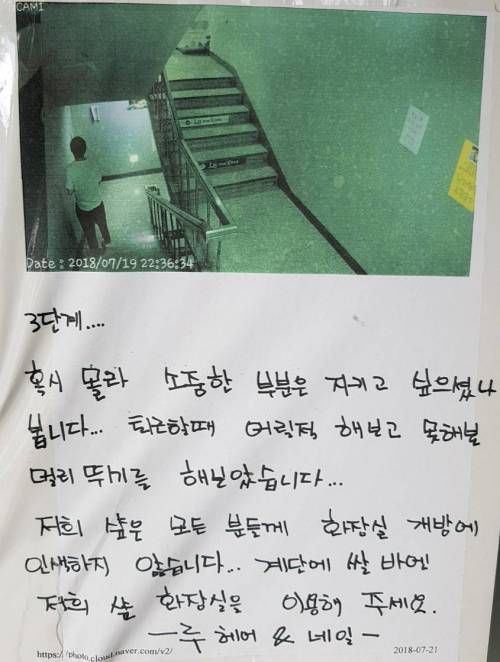 CAM1
Date : 2018/07/19 22:36:34
3단계....
혹시 몰라 소중한 부분은 지키고 싶으셨나
봅니다... 퇴근할때 어릴적 해보고 못해본
멀리 뛰기를 해보았습니다...
저희 샾은 모든 분들께 화장실 개방에
인색하지 않습니다... 계단에 쌀 바엔
저희 샾 화장실을 이용해 주세요.
-루 헤어 & 네일-
https://photo.cloud.naver.com/v2/ 2018-07-21